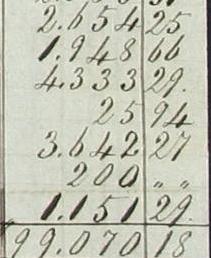 2.654 25
1.948 66
4.333 29.
25 94
3.642 27
200 „ „
1.151 29.
99.070 18